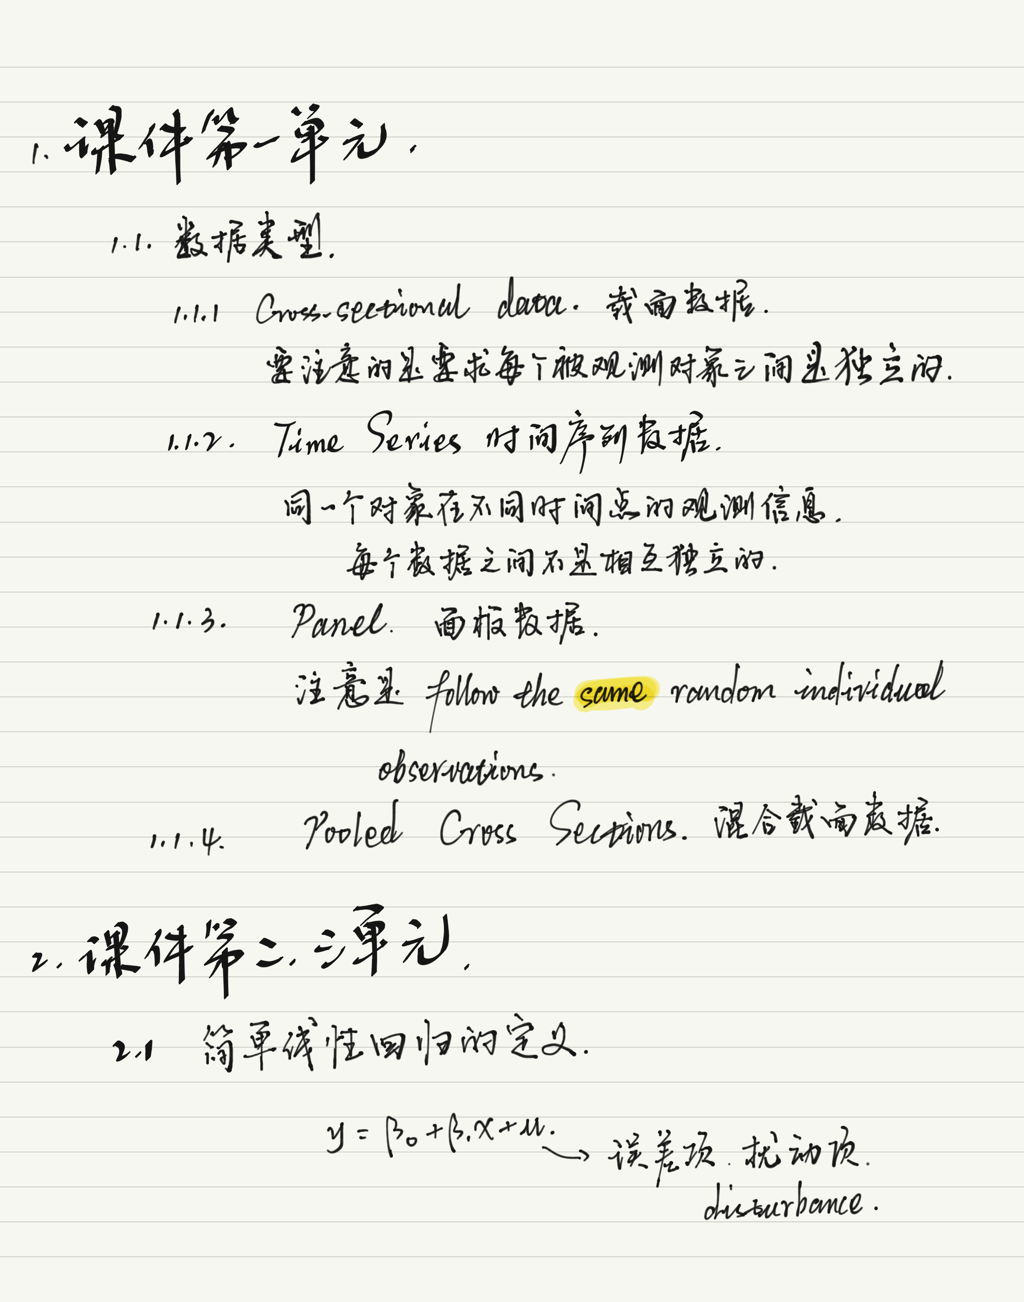 1. 课件第一单元.
1.1. 数据类型.
1.1.1 Cross-sectional data. 截面数据.
要注意的是要求每个被观测对象之间是独立的.
1.1.2. Time Series 时间序列数据.
同一个对象在不同时间点的观测信息.
每个数据之间不是相互独立的.
1.1.3. Panel. 面板数据.
注意是 follow the same random individual
observations.
1.1.4. Pooled Cross Sections. 混合截面数据.
2. 课件第二.三单元.
2.1 简单线性回归的定义.
y = β₀ + β₁x + u. → 误差项. 扰动项.
disturbance.